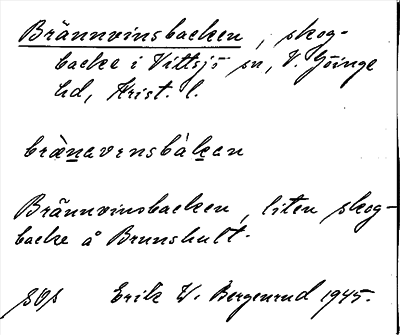 Brännvinsbacken, skog-
backe i Vittsjö sn, V. Göinge
hd, Krist. l.
brànavinsbàkan
Brännvinsbacken, liten skog-
backe å Brunshult.
Erik W. Bergenrud 1945.